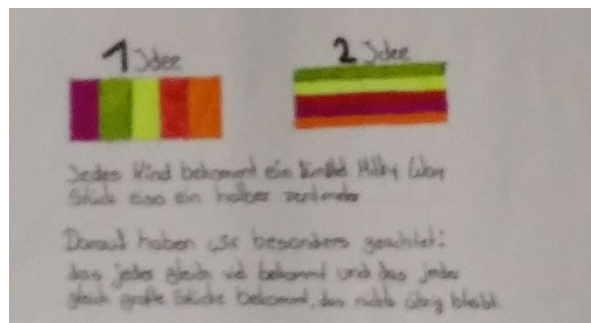 1 Idee
2 Idee
Jedes Kind bekommt ein Milky Way
Stück also ein halber zentimeter
Darauf haben wir besonders geachtet:
das jedes gleich viel bekommt und das jeder
gleich große Stücke bekommt, das nichts übrig bleibt.